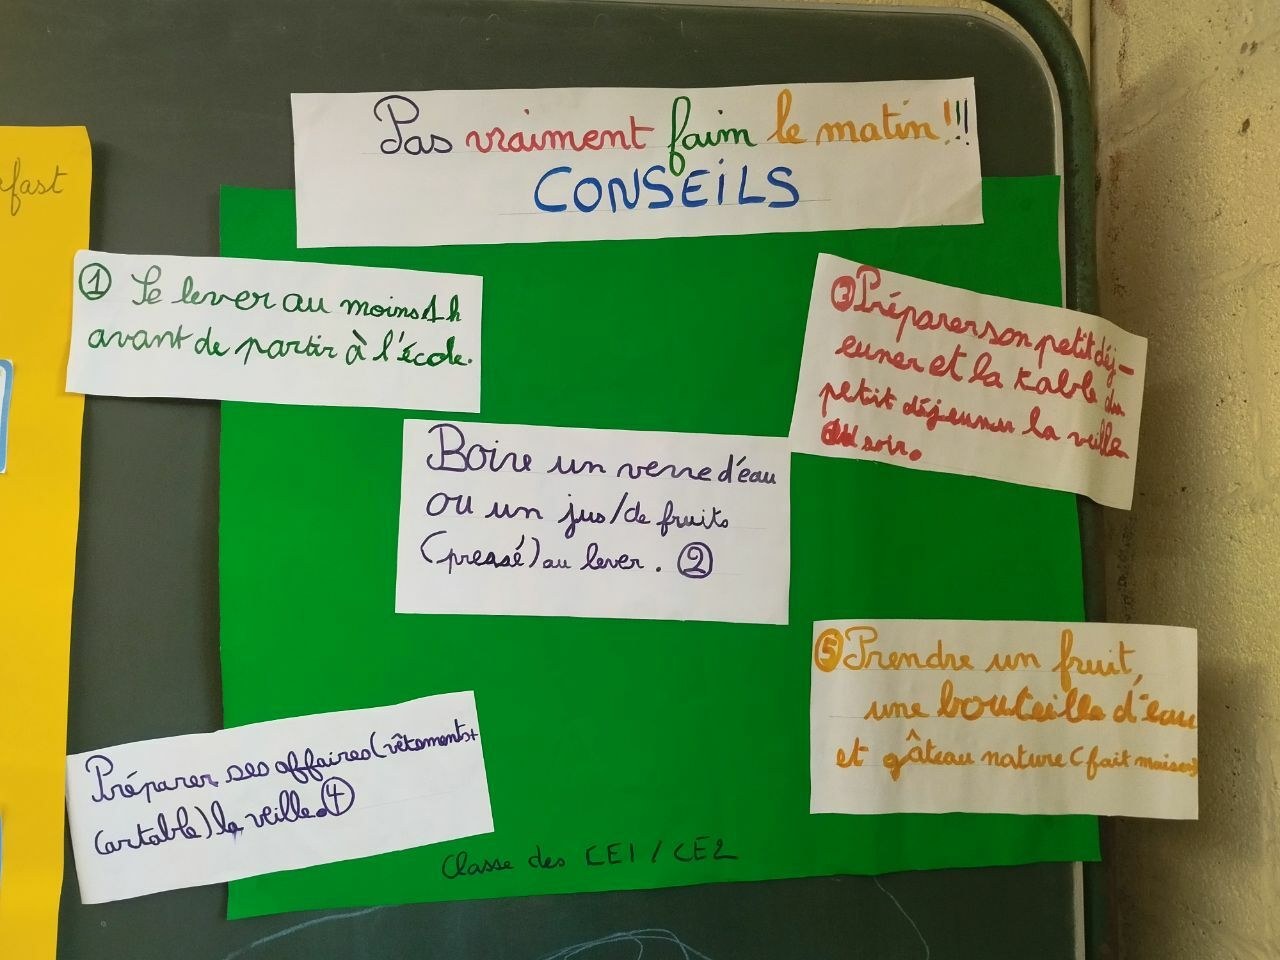 fast
Pas vraiment faim le matin!!!
CONSEILS
① Se lever au moins 1h
avant de partir à l'école.
Boire un verre d'eau
ou un jus/de fruits
(pressé) au lever. ②
③ Préparer son petit déj-
euner et la table du
petit déjeuner la veille
au soir.
Préparer ses affaires (vêtements+
cartable) la veille. ④
⑤ Prendre un fruit,
une bouteille d'eau
et gâteau nature (fait maison)
Classe des CE1 / CE2